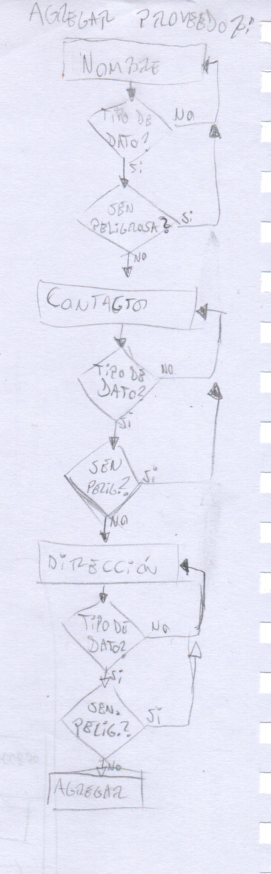 AGREGAR PROVEEDOR:
NOMBRE
TIPO DE
DATO?
NO
Si
SEN
PELIGROSA?
Si
NO
CONTACTO
TIPO DE
DATO?
NO
Si
SEN
PELIG.?
Si
NO
DIRECCIÓN
TIPO DE
DATO?
NO
Si
SEN.
PELIG.?
Si
NO
AGREGAR